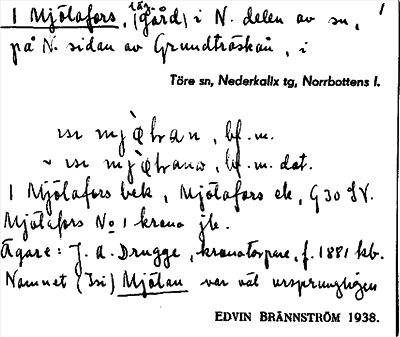 1 Mjölafors, (gård) i N. delen av sn,
på N. sidan av Grundträskån, i
Töre sn, Nederkalix tg, Norrbottens l.
bf. m.
bf. m. dat.
1 Mjölafors bek, Mjölafors ek, G30 SV.
Mjölafors No 1 krono jb.
Ägare: J. A. Drugge, kronotorpare, f. 1881 kb.
Namnet (Isi) Mjölan var väl ursprungligen
EDVIN BRÄNNSTRÖM 1938.